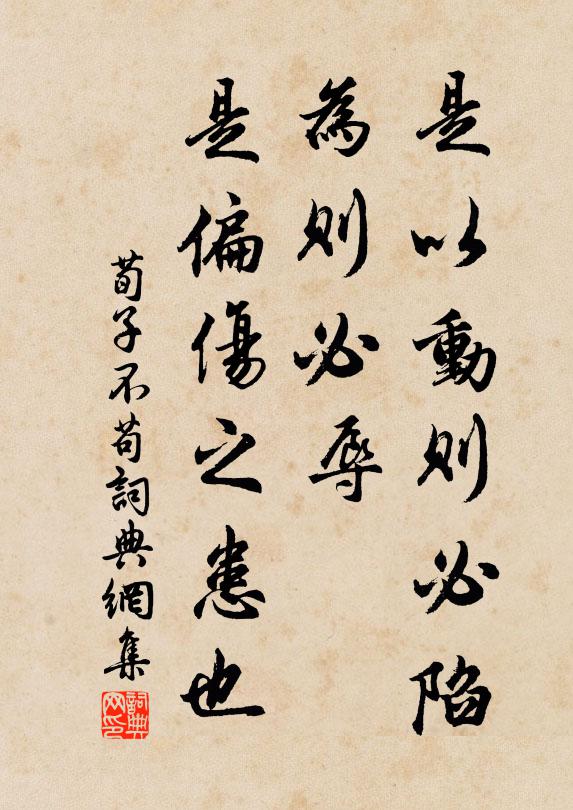 是以動則必陷
為則必辱
是偏傷之患也
荀子不苟詞典網集
詞典
网印